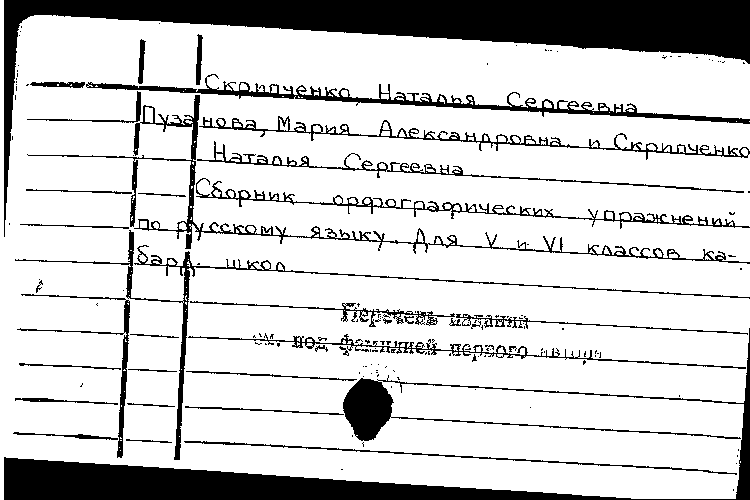 Скрипченко, Наталья Сергеевна
Пузанова, Мария Александровна и Скрипченко
Наталья Сергеевна
Сборник орфографических упражнений
по русскому языку. Для V и VI классов ка-
бард. школ
Перечень изданий
см. под фамилией первого автора